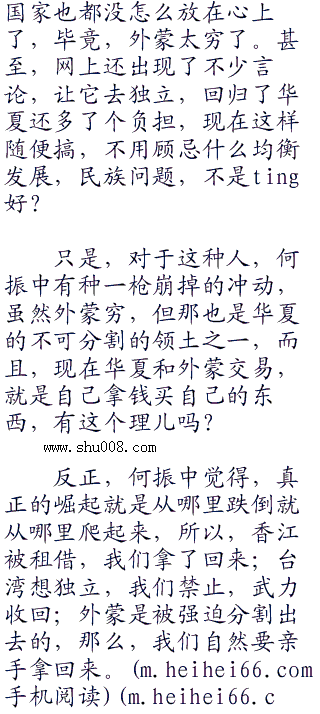 国家也都没怎么放在心上
了，毕竟，外蒙太穷了。甚
至，网上还出现了不少言
论，让它去独立，回归了华
夏还多了个负担，现在这样
随便搞，不用顾忌什么均衡
发展，民族问题，不是ting
好？
只是，对于这种人，何
振中有种一枪崩掉的冲动，
虽然外蒙穷，但那也是华夏
的不可分割的领土之一，而
且，现在华夏和外蒙交易，
就是自己拿钱买自己的东
西，有这个理儿吗？
www.shu008.com
反正，何振中觉得，真
正的崛起就是从哪里跌倒就
从哪里爬起来，所以，香江
被租借，我们拿了回来；台
湾想独立，我们禁止，武力
收回；外蒙是被强迫分割出
去的，那么，我们自然要亲
手拿回来。(m.heihei66.com
手机阅读)(m.heihei66.c